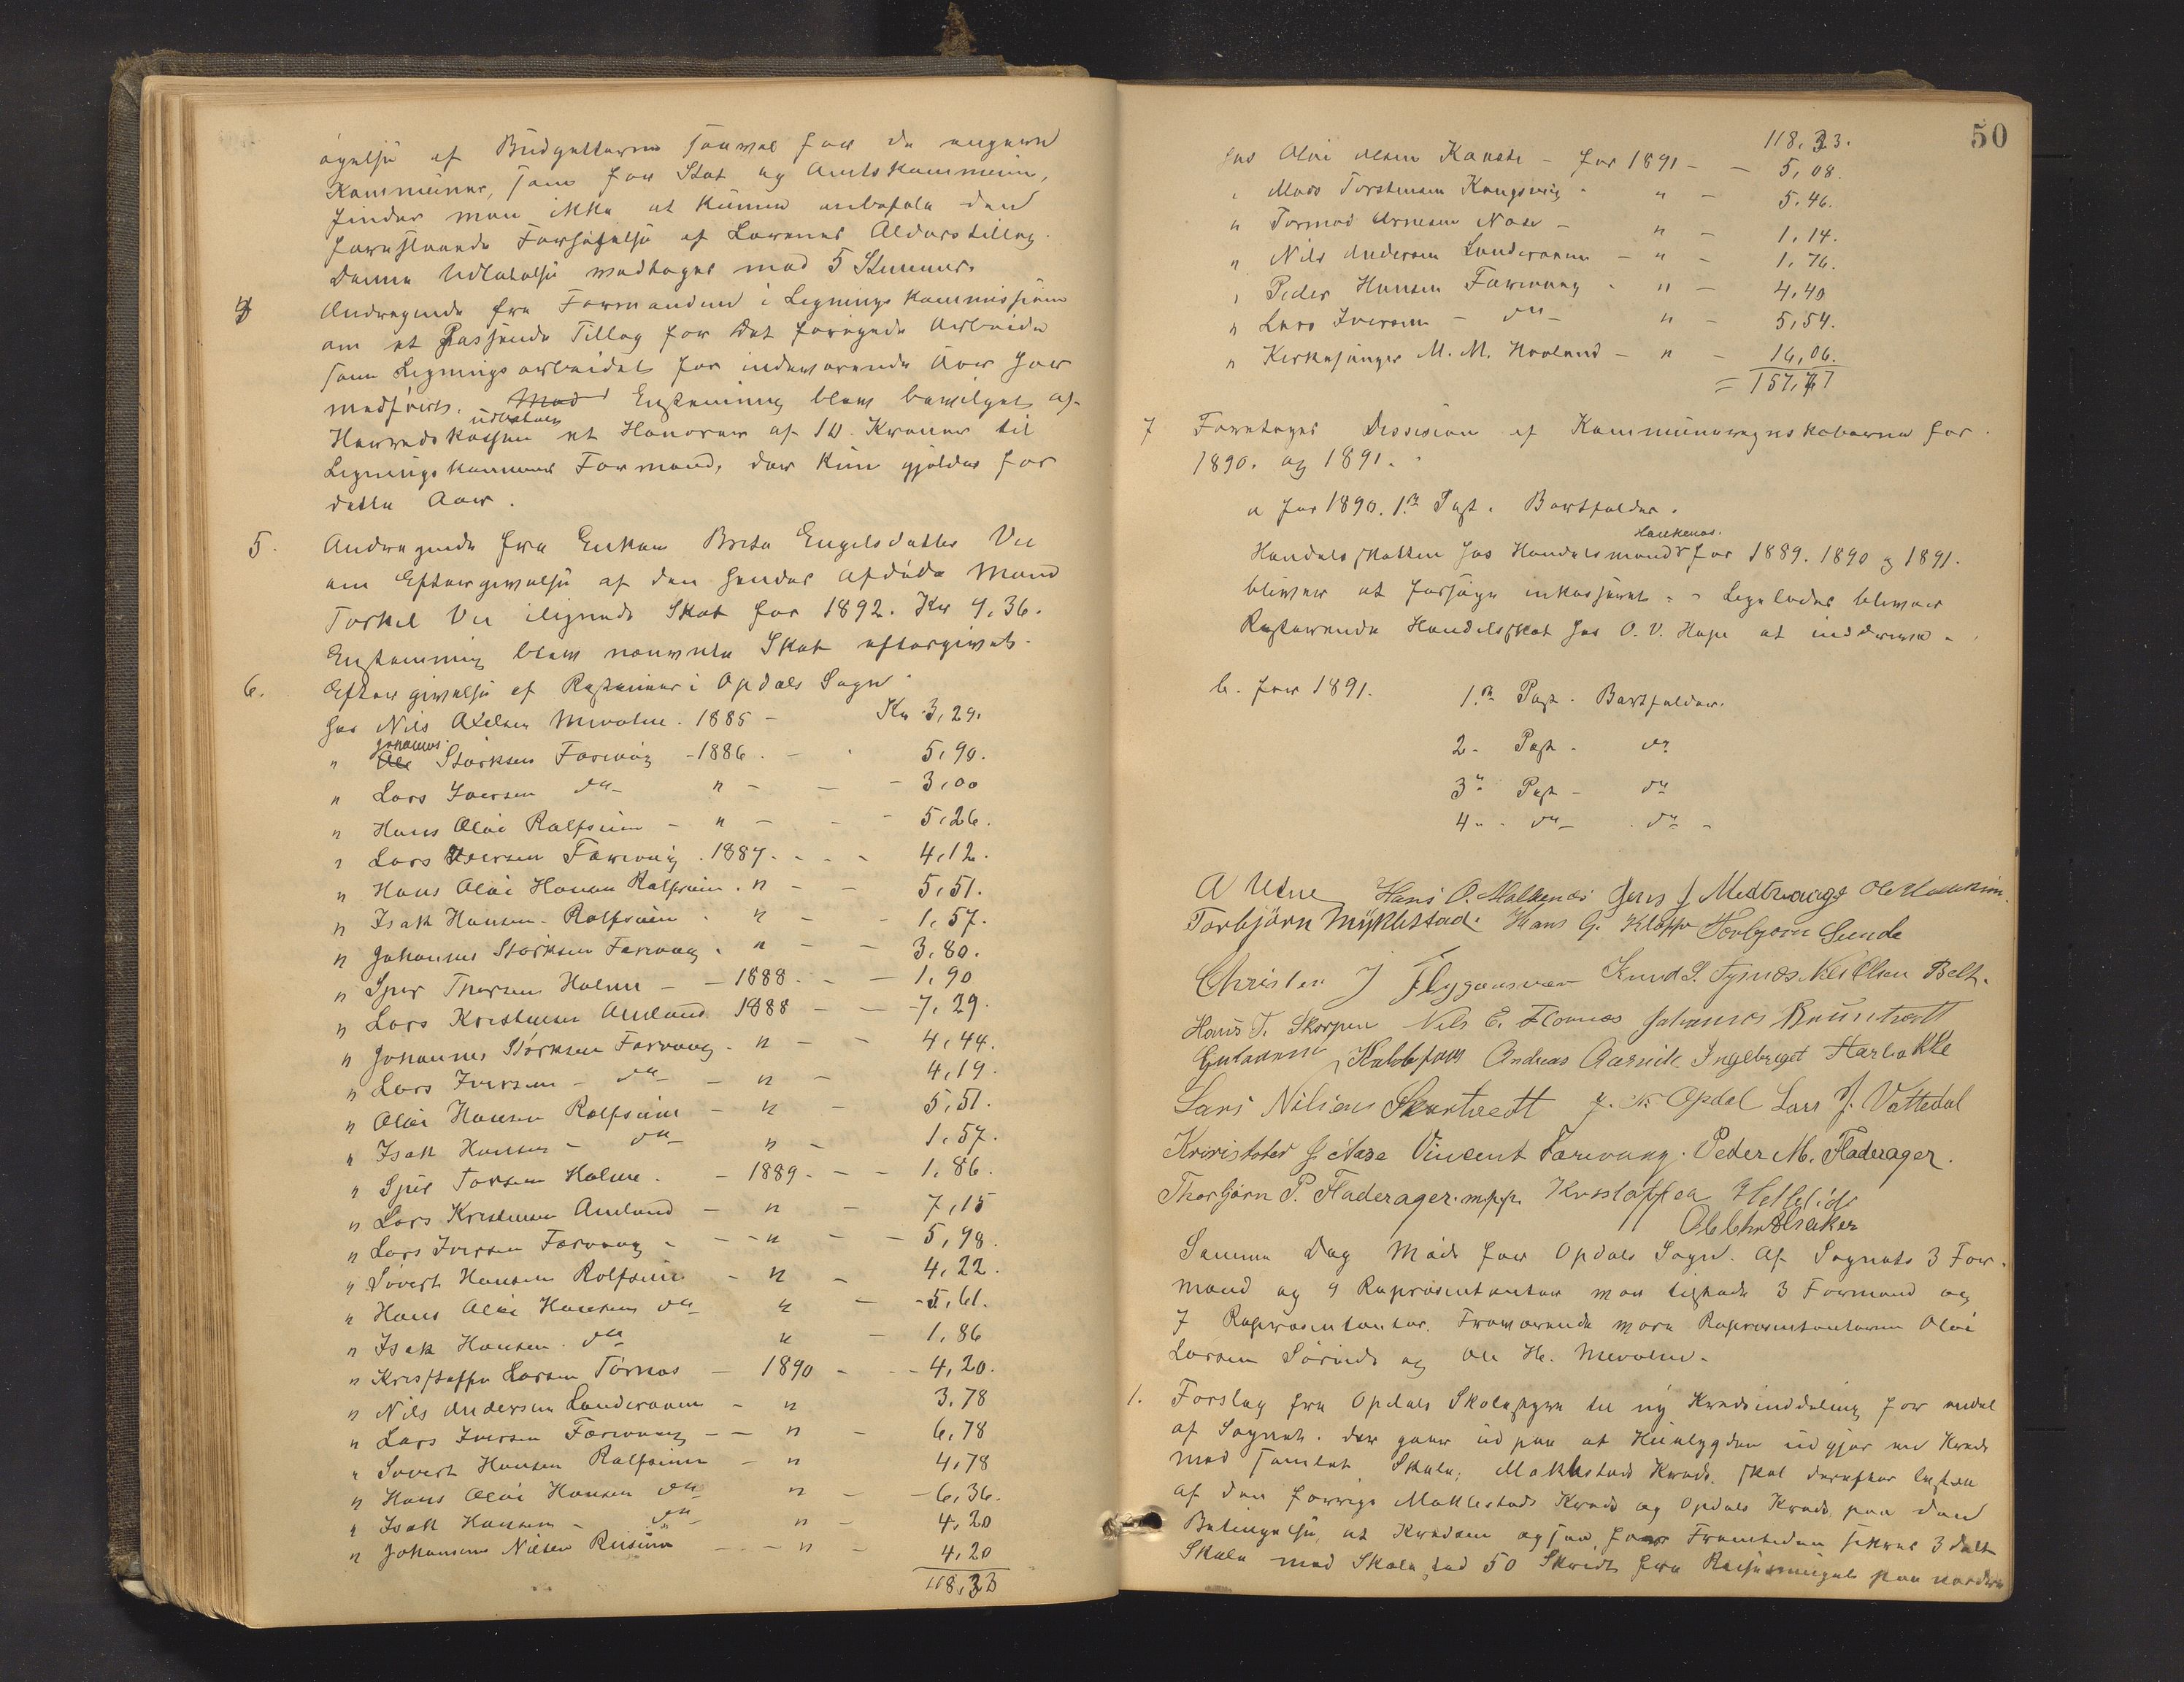 øgelse af Budgetterne saavel for de enge
Kommuner, som for Stat og Amtskommune,
finder man ikke at kunne anbefale den
foreslaaede Forhøielse af Lærernes Alderstillæg.
Denne Udtalelse vedtoges med 5 Stemmer.
4 Andragende fra Formanden i Ligningskommissionen
om et passende Tillæg for det forøgede Arbeide
som Ligningsarbeidet for indeværende Aar har
medført. Med Enstemmig blev bevilget af
Herredskassen udbetalt et Honorar af 10 Kroner til
Ligningskommns Formand, der kun gjælder for
dette Aar.
5. Andragende fra Enken Brita Engelsdatter Vee
om Eftergivelse af den hendes afdøde Mand
Torkel Vee ilignede Skat for 1892. Kr 4,36.
Enstemmig blev nævnte Skat eftergivet.
6. Eftergivelse af Restancer i Opdals Sogn
hos Nils Axelsen Mevatne. 1885 - Kr 3,29.
" Ole Johannes Størksen Færevaag - 1886. - 5,90.
" Lars Iversen do " - - 3,00
" Hans Olai Rolfsnæs - " - - 5,26.
" Lars Iversen Færevaag. 1887. - - 4,12.
" Hans Olai Hansen Rolfsnæs. " - - 5,51.
" Isak Hansen Rolfsnæs. " - - 1,57.
" Johannes Størksen Færevaag. " - - 3,80.
" Sjur Thorsen Holme - - 1888. - - 1,90
" Lars Kristensen Amland 1888 - - 7,29.
" Johannes Størksen Færevaag. " - - 4,44.
" Lars Iversen - do - " - 4,19.
" Olai Hansen Rolfsnæs - " - 5,51.
" Isak Hansen - do " - 1,57.
" Sjur Torsen Holme. - 1889. - - 1,86.
" Lars Kristensen Amland - " - 7,15
" Lars Iversen Færevaag - - - " - - 5,98.
" Sivert Hansen Rolfsnæs - " - 4,22.
" Hans Olai Hansen do " - - 5,61.
" Isak Hansen. do " - 1,86
" Kristoffer Larsen Tornæs - 1890 - - 4,20.
" Nils Andersen Landeraaen - " 3,78
" Lars Iversen Færevaag - - " - 6,78
" Sivert Hansen Rolfsnæs - " 4,78
" Hans Olai Hansen do " - - 6,36.
" Isak Hansen - do " - 4,20
" Johannes Nielsen - - " - 4,20
118,33
50
118,33.
hos Olai Olsen Kaaste - for 1891 - - 5,08.
" Mads Torstensen Kongsvig " " - 5,46.
" Tormod Arnesen Nase - " - 1,14.
" Nils Andersen Landeraaen - " - 1,76.
" Peder Hansen Færevaag - " - 4,40
" Lars Iversen - do - " - 5,54.
" Kirkesanger M. M. Hovland - " - 16,06.
= 157,77
7 Foretoges Desision af Kommuneregnskaberne for
1890. og 1891.
a for 1890. 1ste Post. Bortfalder.
Handelsskatten hos Handelsmand Haukenæs. for 1889. 1890 og 1891.
bliver at forsøge inkasseret. - Ligeledes bliver
Resterende Handelsskat hos O. V. Hope at inddrive.
b. for 1891. 1ste Post. Bortfalder.
2- Post - do
3- Post - do
4- - do - do -
A Utne Hans O. Malkenæs Jens J Medtvaage Ole Haaheim.
Torbjørn Myklestad. Hans G. Kleppe Torbjørn Sunde
Christen J Flygansvær Knud S. Tysnæs Nils Olsen Belt.
Hans T. Skorpen Nils E. Flornes Johannes Bruntvedt
Andreas Aarvik Ingebrigt Hatlebakke
Lars Nilsen Skartvedt J. N. Opdal Lars J. Vattedal
Kristofer J. Nase Vincent Færevaag. Peder M. Fladerager.
Thorbjørn P. Fladerager. m.p.p. Kristoffer Hetlelid
Ole Chr Olsaker
Samme Dag Møde for Opdals Sogn. Af Sognets 3 For-
mænd og 9 Repræsentanter var tilstede 3 Formænd og
7 Repræsentanter. Fraværende vare Repræsentanterne Olai
Larsen Sørvide og Ole H. Mevatne.
1. Forslag fra Opdals Skolestyre til ny Kredsinddeling for endel
af Sognet. der gaar ud paa at Huebygden udgjør en Kreds
med samlet Skole; Malkestads Kreds. skal derefter bestaa
af den forrige Malkestads Kreds og Opdals Kreds, paa den
Betingelse at Kredsen ogsaa for Fremtiden sikres 3 delt
Skole med Skolested 50 Skridt fra paa nordre